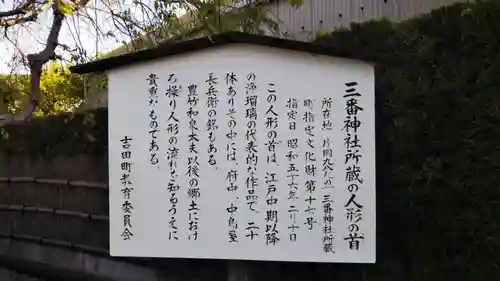 三番神社所蔵の人形の首
所在地 片岡九八の一 三番神社所蔵
町指定文化財第十七号
指定日 昭和五十六年二月十日
この人形の首は、江戸中期以降
の浄瑠璃の代表的な作品で、二十
体ありその中には、府中、中島屋
長兵衛の銘もある。
豊竹和泉太夫以後の郷土にお
ける操り人形の流れを知るうえに
貴重なものである。
吉田町教育委員会